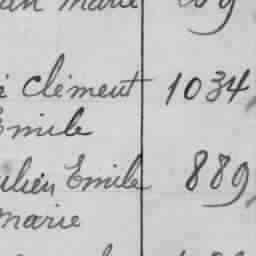 Marie
Clément 1034
Emile
Emile 889
Marie